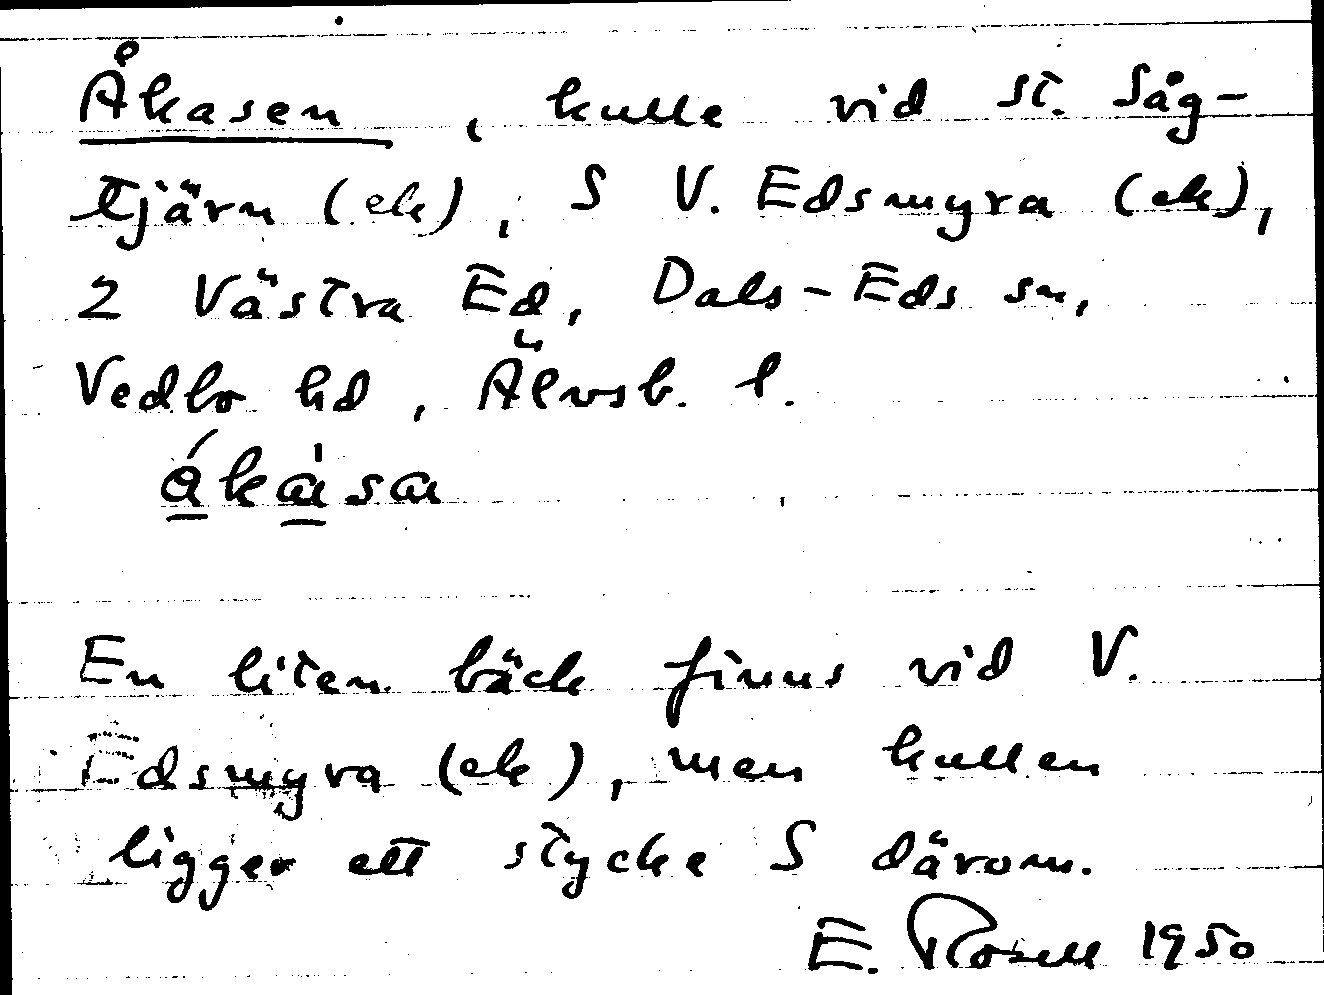 Åkasen, kulle vid St. Såg-
tjärn (ek), S V. Edsmyra (ek),
2 Västra Ed, Dals-Eds sn,
Vedbo hd, Älvsb. l.
En liten bäck finns vid V.
Edsmyra (ek), men kullen
ligger ett stycke S därom.
E. Rosell 1950